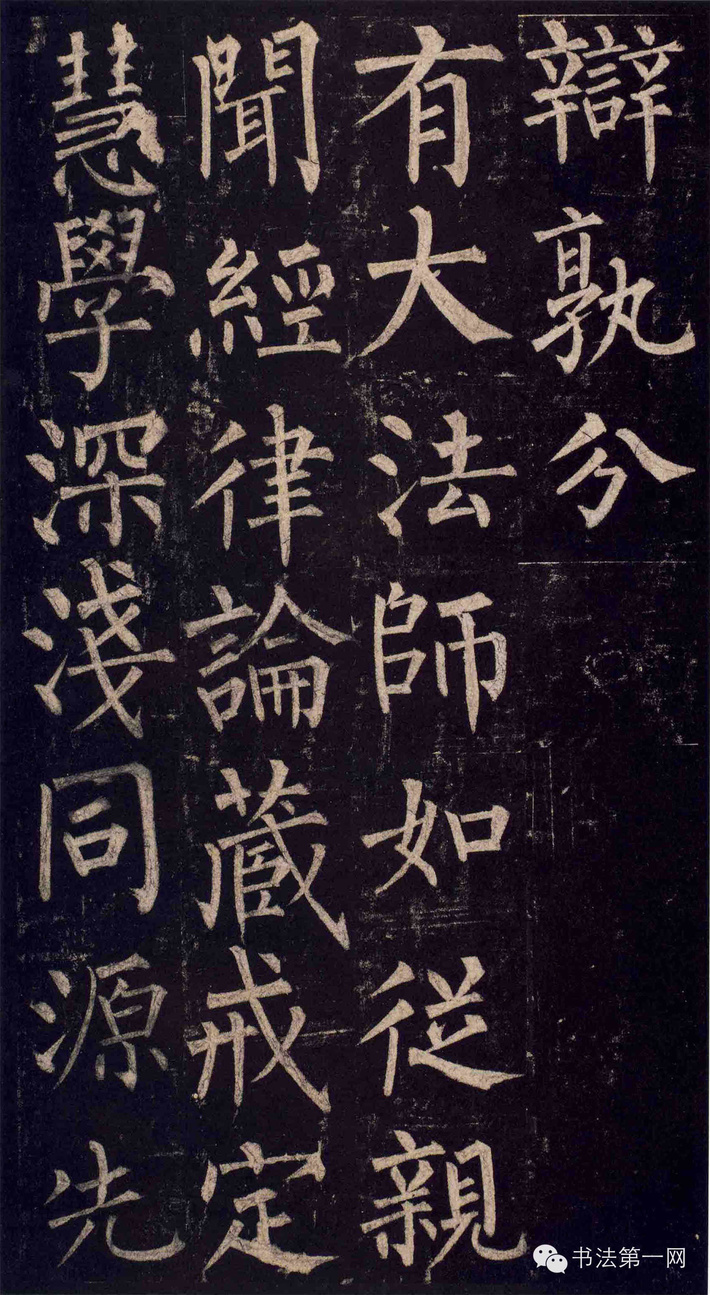 辯孰分
有大法師如從親
聞經律論藏戒定
慧學深淺同源先
书法第一网